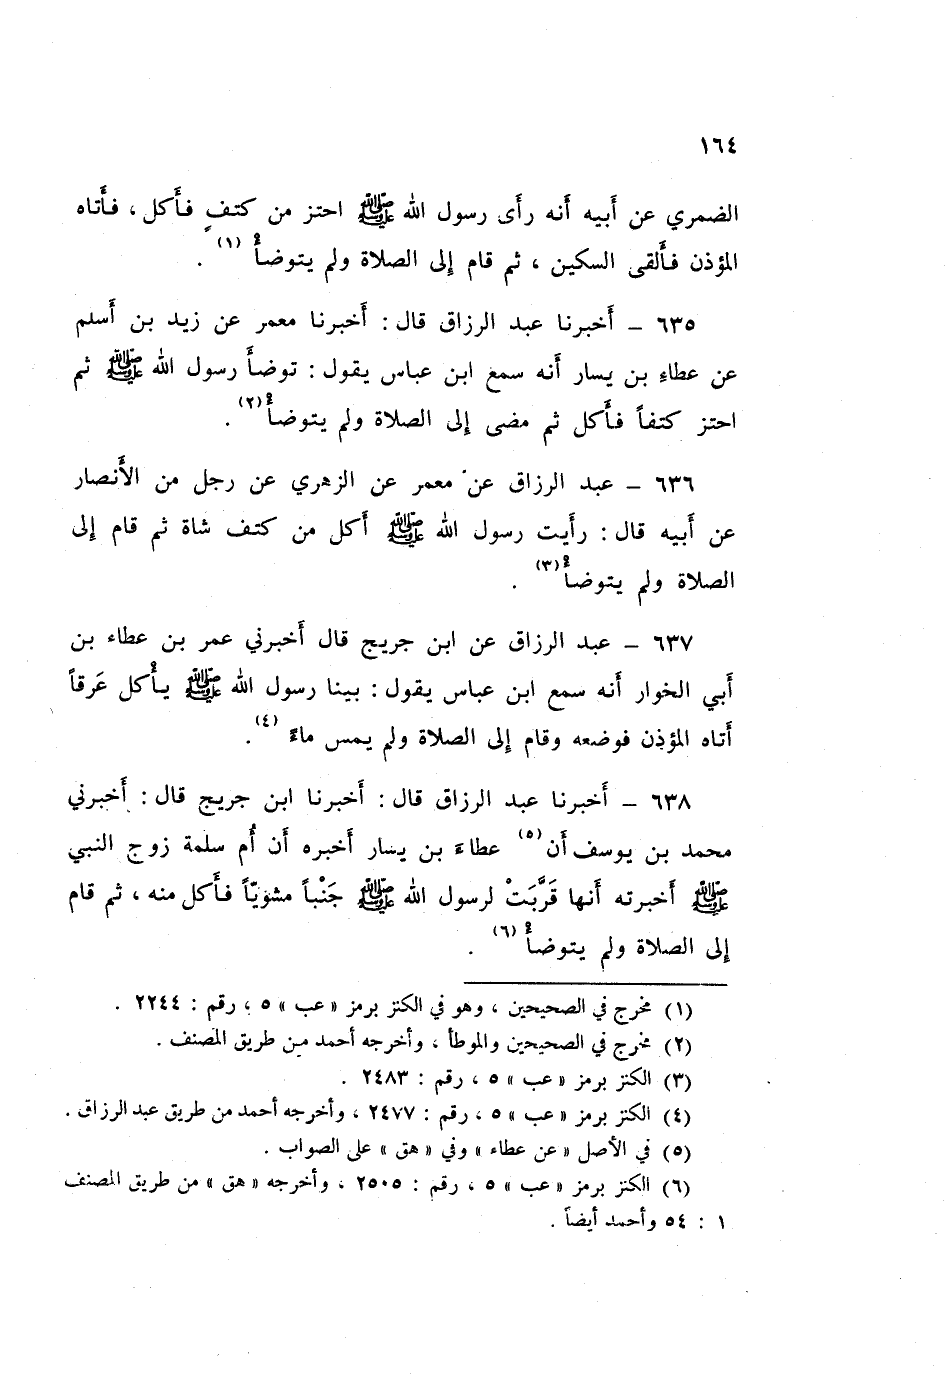 ١٦٤
الضمري عن أبيه أنه رأى رسول الله ﷺ احتز من كتفٍ فأكل ، فأتاه
المؤذن فألقى السكين ، ثم قام إلى الصلاة ولم يتوضأْ (١) .
٦٣٥ – أخبرنا عبد الرزاق قال : أخبرنا معمر عن زيد بن أسلم
عن عطاءِ بن يسار أنه سمع ابن عباس يقول : توضأَ رسول الله ﷺ ثم
احتز كتفاً فأكل ثم مضى إلى الصلاة ولم يتوضأْ (٢) .
٦٣٦ – عبد الرزاق عن معمر عن الزهري عن رجل من الأنصار
عن أبيه قال : رأيت رسول الله ﷺ أكل من كتف شاة ثم قام إلى
الصلاة ولم يتوضأْ (٣) .
٦٣٧ – عبد الرزاق عن ابن جريج قال أخبرني عمر بن عطاء بن
أبي الخوار أنه سمع ابن عباس يقول : بينا رسول الله ﷺ يأْكل عَرقاً
أتاه المؤذن فوضعه وقام إلى الصلاة ولم يمس ماءً (٤) .
٦٣٨ – أخبرنا عبد الرزاق قال : أخبرنا ابن جريج قال : أخبرني
محمد بن يوسف أن (٥) عطاءَ بن يسار أخبره أن أُم سلمة زوج النبي
ﷺ أخبرته أنها قَرَّبَتْ لرسول الله ﷺ جَنْباً مشويّاً فأكل منه ، ثم قام
إلى الصلاة ولم يتوضأْ (٦) .
(١) مخرج في الصحيحين ، وهو في الكنز برمز « عب » ٥ ، رقم : ٢٢٤٤ .
(٢) مخرج في الصحيحين والموطأ ، وأخرجه أحمد من طريق المصنف .
(٣) الكنز برمز « عب » ٥ ، رقم : ٢٤٨٣ .
(٤) الكنز برمز « عب » ٥ ، رقم : ٢٤٧٧ ، وأخرجه أحمد من طريق عبد الرزاق .
(٥) في الأصل « عن عطاء » وفي « هق » على الصواب .
(٦) الكنز برمز « عب » ٥ ، رقم : ٢٥٠٥ ، وأخرجه « هق » من طريق المصنف
١ : ٥٤ وأحمد أيضاً .